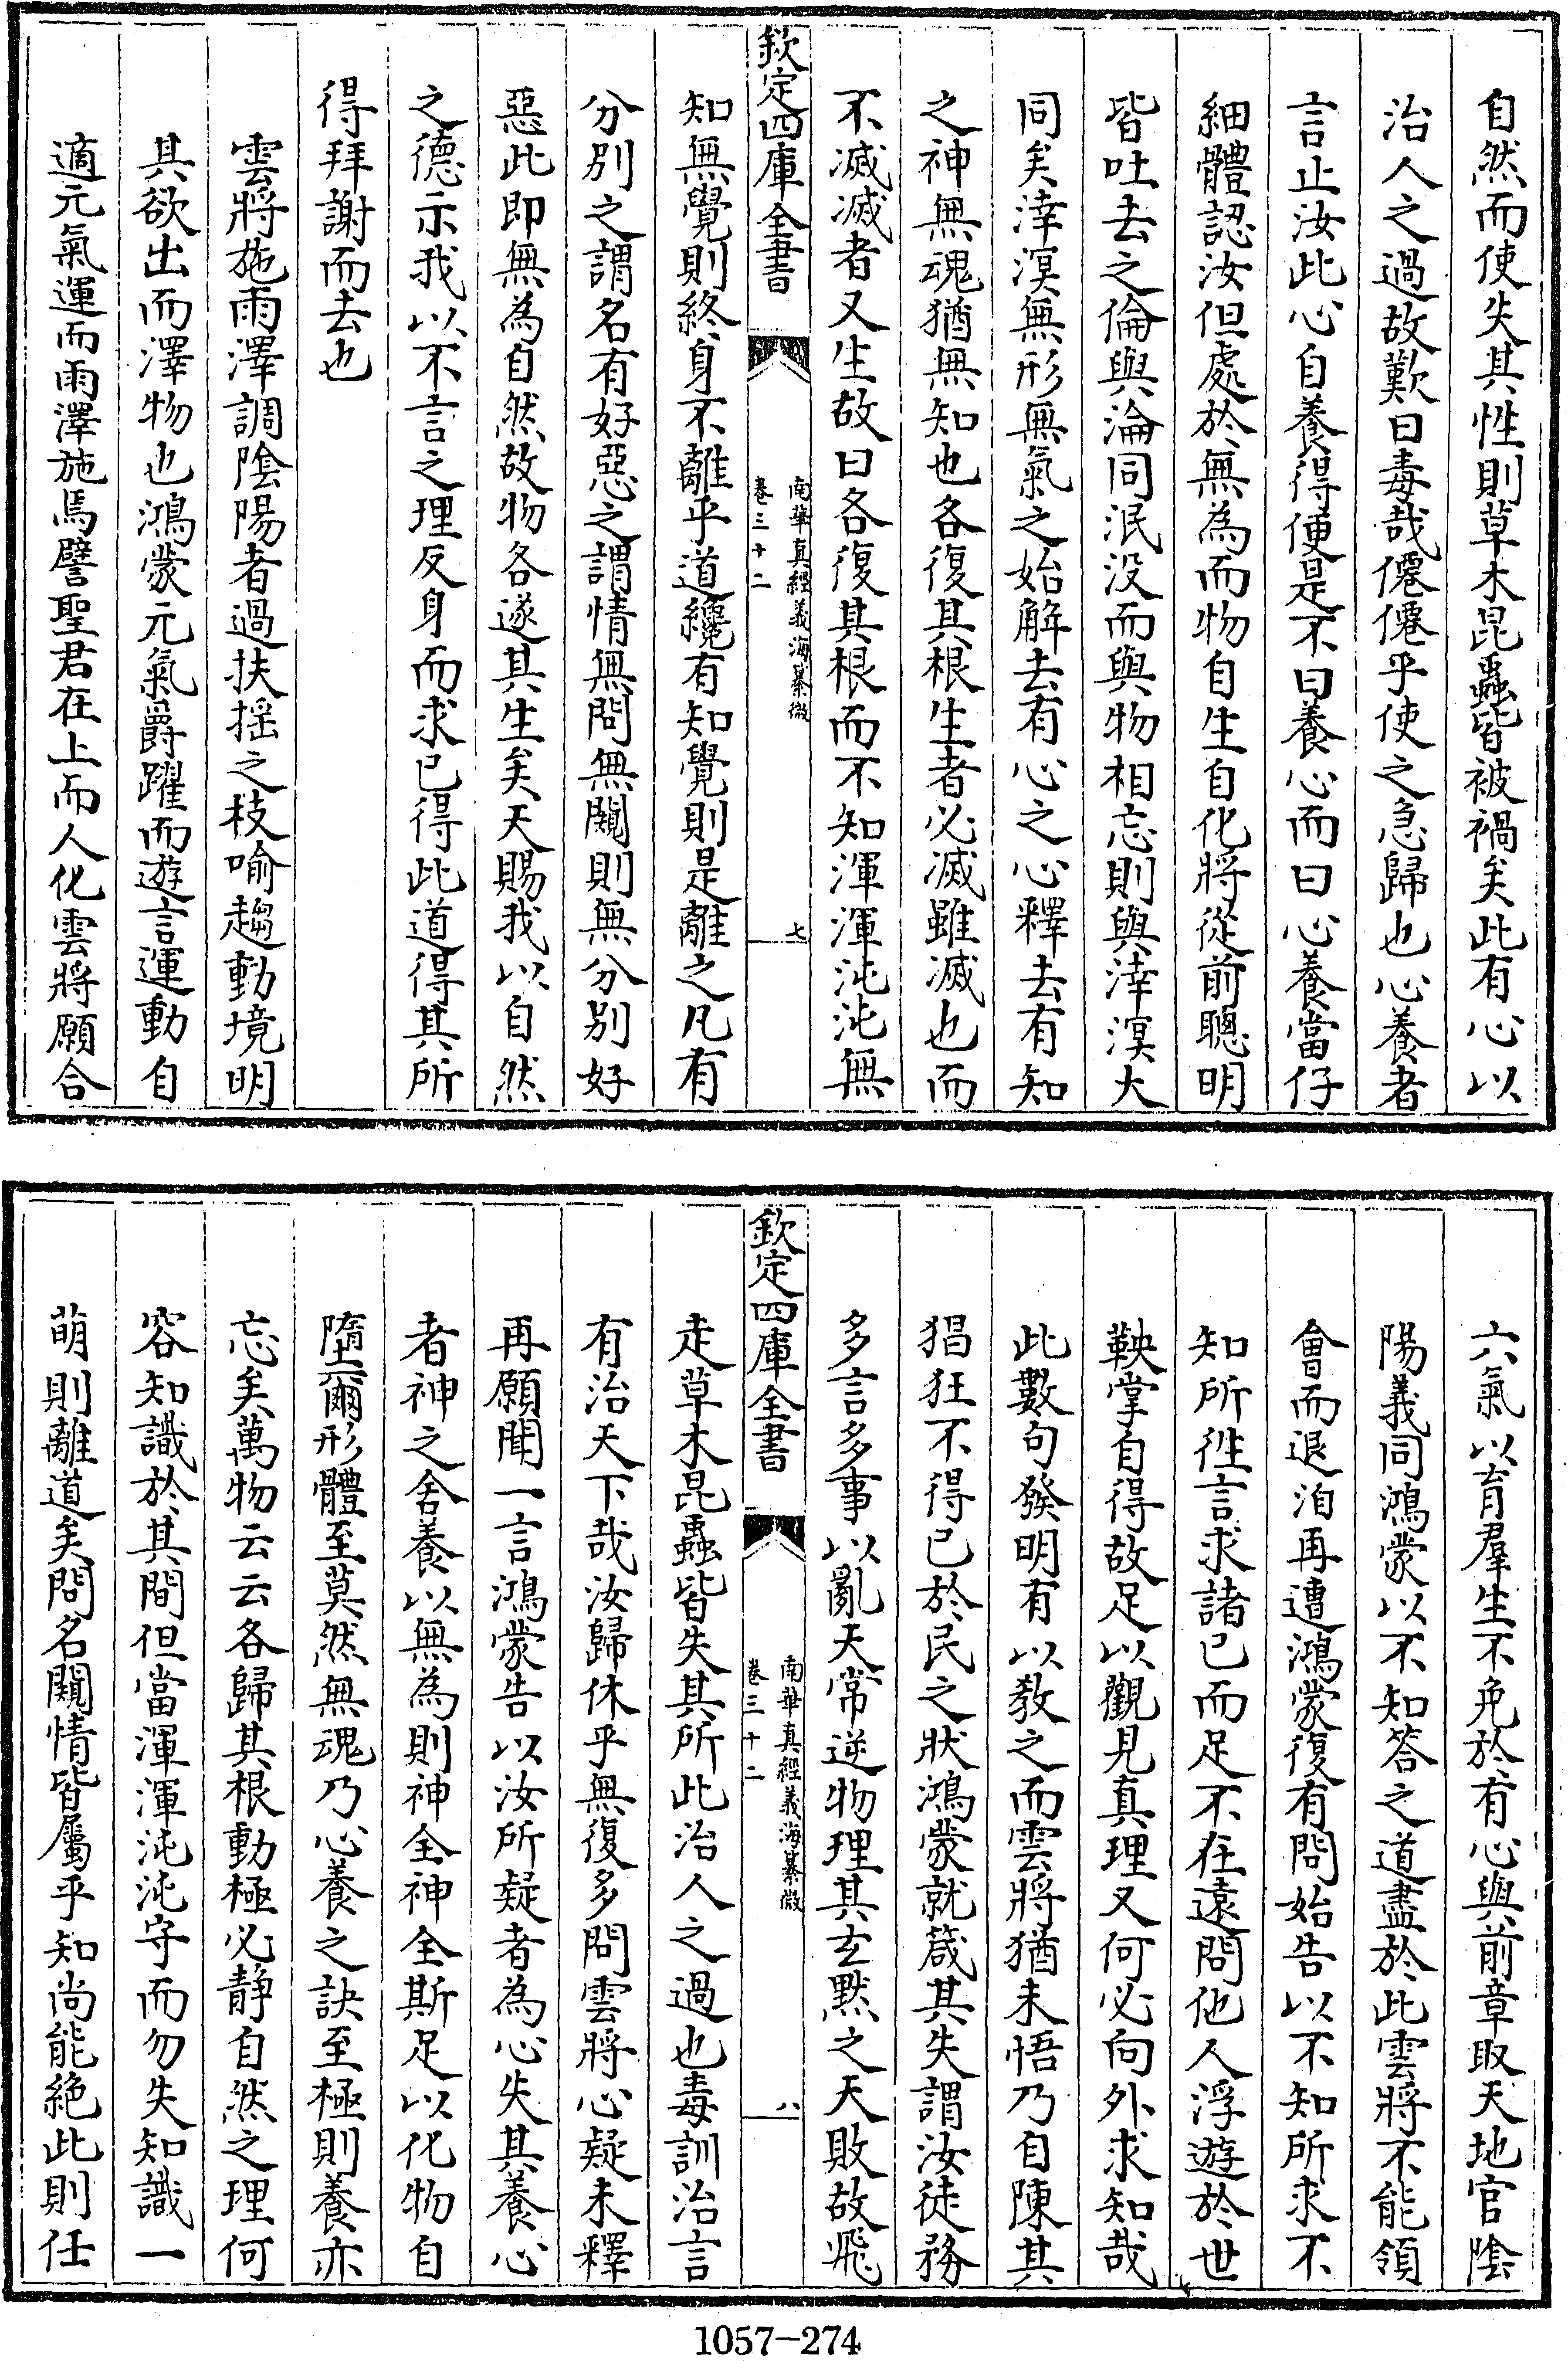 自然而使失其性則草木昆蟲皆被禍矣此有心以
治人之過故歎曰毒哉僊僊乎使之急歸也心養者
言止汝此心自養得便是不曰養心而曰心養當仔
細體認汝但處於無為而物自生自化將從前聰明
皆吐去之倫與淪同泯没而與物相忘則與涬溟大
同矣涬溟無形無氣之始解去有心之心釋去有知
之神無魂猶無知也各復其根生者必滅雖滅也而
不滅滅者又生故曰各復其根而不知渾渾沌沌無
欽定四庫全書
南華真經義海纂微
卷三十二
七
知無覺則終身不離乎道纔有知覺則是離之凡有
分别之謂名有好惡之謂情無問無闚則無分别好
惡此即無為自然故物各遂其生矣天賜我以自然
之德示我以不言之理反身而求已得此道得其所
得拜謝而去也
雲將施雨澤調隂陽者過扶摇之枝喻趨動境明
其欲出而澤物也鴻蒙元氣爵躍而遊言運動自
適元氣運而雨澤施焉譬聖君在上而人化雲將願合
六氣以育羣生不免於有心與前章取天地官隂
陽義同鴻蒙以不知答之道盡於此雲將不能領
會而退洎再遭鴻蒙復有問始告以不知所求不
知所徃言求諸已而足不在遠問他人浮遊於世
鞅掌自得故足以觀見真理又何必向外求知哉
此數句發明有以教之而雲將猶未悟乃自陳其
猖狂不得已於民之狀鴻蒙就箴其失謂汝徒務
多言多事以亂天常逆物理其玄黙之天敗故飛
欽定四庫全書
南華真經義海纂微
卷三十二
八
走草木昆蟲皆失其所此治人之過也毒訓治言
有治天下哉汝歸休乎無復多問雲將心疑未釋
再願聞一言鴻蒙告以汝所疑者為心失其養心
者神之舍養以無為則神全神全斯足以化物自
墮爾形體至莫然無魂乃心養之訣至極則養亦
忘矣萬物云云各歸其根動極必静自然之理何
容知識於其間但當渾渾沌沌守而勿失知識一
萌則離道矣問名闚情皆屬乎知尚能絶此則任
1057-274